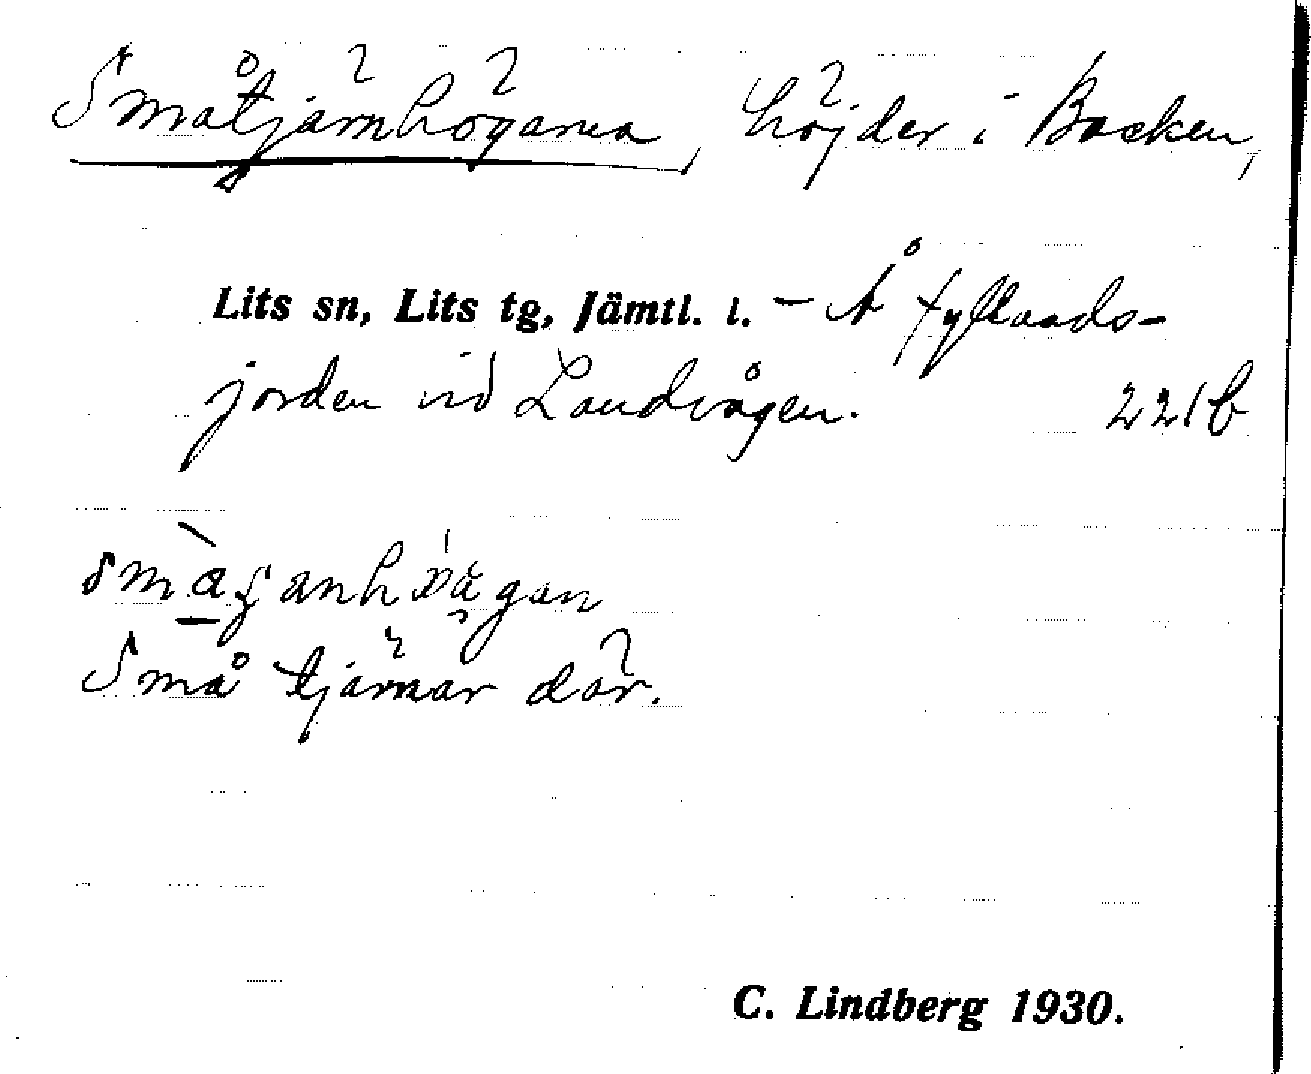 Småtjärnhögarna, höjder i Backen,
Lits sn, Lits tg, Jämtl. l. – Å fyllnads-
jorden vid Landvågen. 221b
Små tjärnar där.
C. Lindberg 1930.